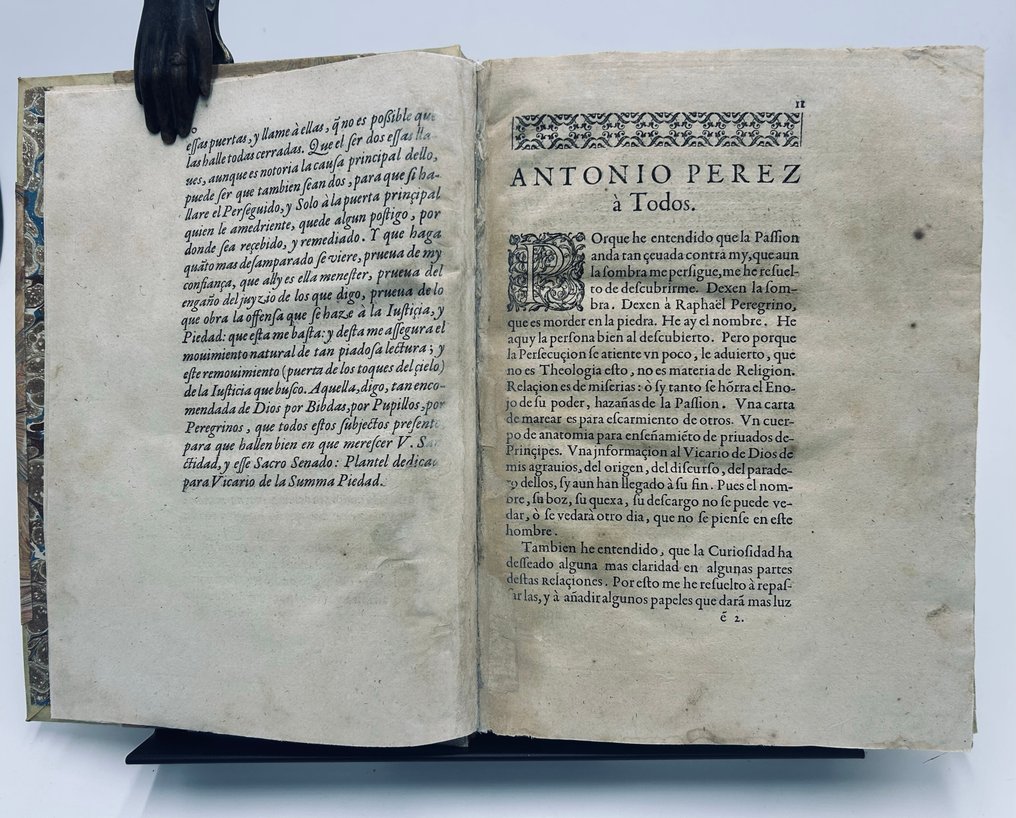 essas puertas, y llame à ellas, q̃ no es possible que
las halle todas cerradas. Que el ser dos essas lla-
ues, aunque es notoria la causa principal dello,
puede ser que tambien sean dos, para que si ha-
llare el Perseguido, y Solo à la puerta prinçipal
quien le amedriente, quede algun postigo, por
donde sea reçebido, y remediado. Y que haga
quãto mas desamparado se viere, prueua de my
confiança, que ally es ella menester, prueua del
engaño del juyzio de los que digo, prueua de lo
que obra la offensa que se haze à la Iustiçia, y
Piedad: que esta me basta: y desta me assegura el
mouimiento natural de tan piadosa lectura; y
este remouimiento (puerta de los toques del çielo)
de la Iustiçia que busco. Aquella, digo, tan enco-
mendada de Dios por Bibdas, por Pupillos, por
Peregrinos, que todos estos subjectos presente
para que hallen bien en que meresçer V. San-
ctidad, y esse Sacro Senado: Plantel dedicado
para Vicario de la Summa Piedad.
11
ANTONIO PEREZ
à Todos.
POrque he entendido que la Passion
anda tan çeuada contra my, que aun
la sombra me persigue, me he resuel-
to de descubrirme. Dexen la som-
bra. Dexen à Raphaël Peregrino,
que es morder en la piedra. He ay el nombre. He
aquy la persona bien al descubierto. Pero porque
la Persecuçion se atiente vn poco, le aduierto, que
no es Theologia esto, no es materia de Religion.
Relaçion es de miserias: ò sy tanto se hõrra el Eno-
jo de su poder, hazañas de la Passion. Vna carta
de marear es para escarmiento de otros. Vn cuer-
po de anatomia para enseñamiẽto de priuados de
Prinçipes. Vna jnformaçion al Vicario de Dios de
mis agrauios, del origen, del discurso, del parade-
ro dellos, sy aun han llegado à su fin. Pues el nom-
bre, su boz, su quexa, su descargo no se puede ve-
dar, ò se vedarà otro dia, que no se piense en este
hombre.
Tambien he entendido, que la Curiosidad ha
desseado alguna mas claridad en algunas partes
destas Relaçiones. Por esto me he resuelto à repas-
sar las, y à añadir algunos papeles que darã mas luz
ẽ 2.